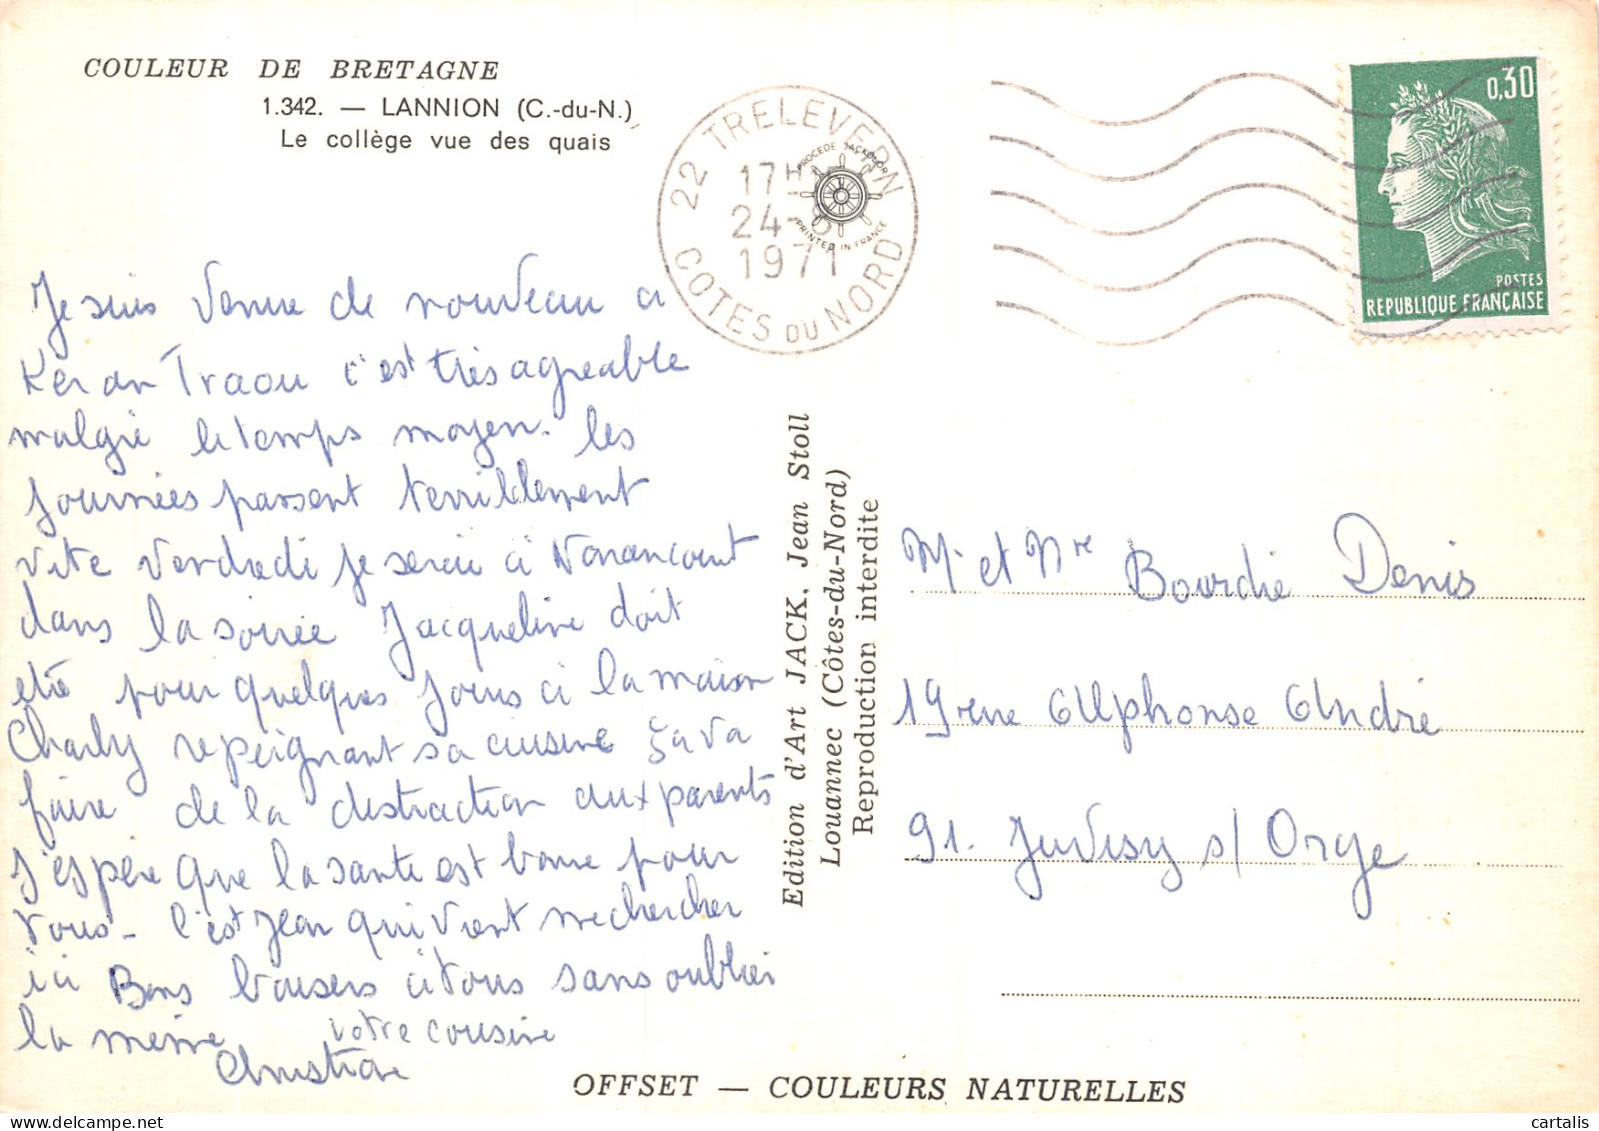 COULEUR DE BRETAGNE
1.342. — LANNION (C.-du-N.)
Le collège vue des quais
22 TRELEVERN
17H
24-8
1971
COTES DU NORD
PROCEDE JACKOLOR
PRINTED IN FRANCE
0,30
POSTES
REPUBLIQUE FRANÇAISE
Je suis venue de nouveau a
Ker an Traou c'est très agreable
malgré le temps moyen. les
journées passent terriblement
vite vendredi je serai à
dans la soirée Jacqueline doit
etre pour quelques jours à la maison
Charly repeignant sa cuisine ça va
faire de la distraction aux parents
J'espère que la santé est bonne pour
vous - C'est Jean qui vient me chercher
ici Bons baisers à tous sans oublier
la mémé votre cousine
Christiane
Edition d'Art JACK, Jean Stoll
Louannec (Côtes-du-Nord)
Reproduction interdite
Mr et Mre Bourdié Denis
19 rue Alphonse André
91. Juvisy s/ Orge
OFFSET — COULEURS NATURELLES
cartalis